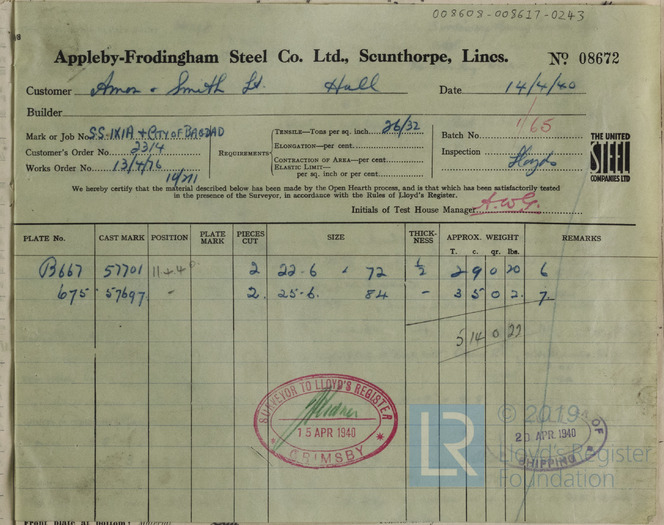 008608-008617-0243
Appleby-Frodingham Steel Co. Ltd., Scunthorpe, Lincs. No 08672
Customer Amos & Smith Lt. Hull Date 14/4/40
Builder 1/65
Mark or Job No. SS. IXIA & CITY OF BAGDAD
Customer's Order No. 2314
Works Order No. 13/4/76
19/211
REQUIREMENTS
TENSILE—Tons per sq. inch 26/32
ELONGATION—per cent.
CONTRACTION OF AREA—per cent.
ELASTIC LIMIT—
per sq. inch or per cent.
Batch No.
Inspection Lloyds
THE UNITED
STEEL
COMPANIES LTD
We hereby certify that the material described below has been made by the Open Hearth process, and is that which has been satisfactorily tested
in the presence of the Surveyor, in accordance with the Rules of Lloyd's Register.
Initials of Test House Manager A.W.G.
PLATE No. CAST MARK POSITION PLATE MARK PIECES CUT SIZE THICK-NESS APPROX. WEIGHT REMARKS
T. c. qr. lbs.
B667 57701 11+4 2 22-6 72 1/2 2 9 0 20 6
675 57697 - 2. 25-6. 84 - 3 5 0 2. 7
5 14 0 22
SURVEYOR TO LLOYD'S REGISTER
15 APR 1940
GRIMSBY
LR
© 2019
Lloyd's Register
Foundation
OF
20 APR 1940
SHIPPING